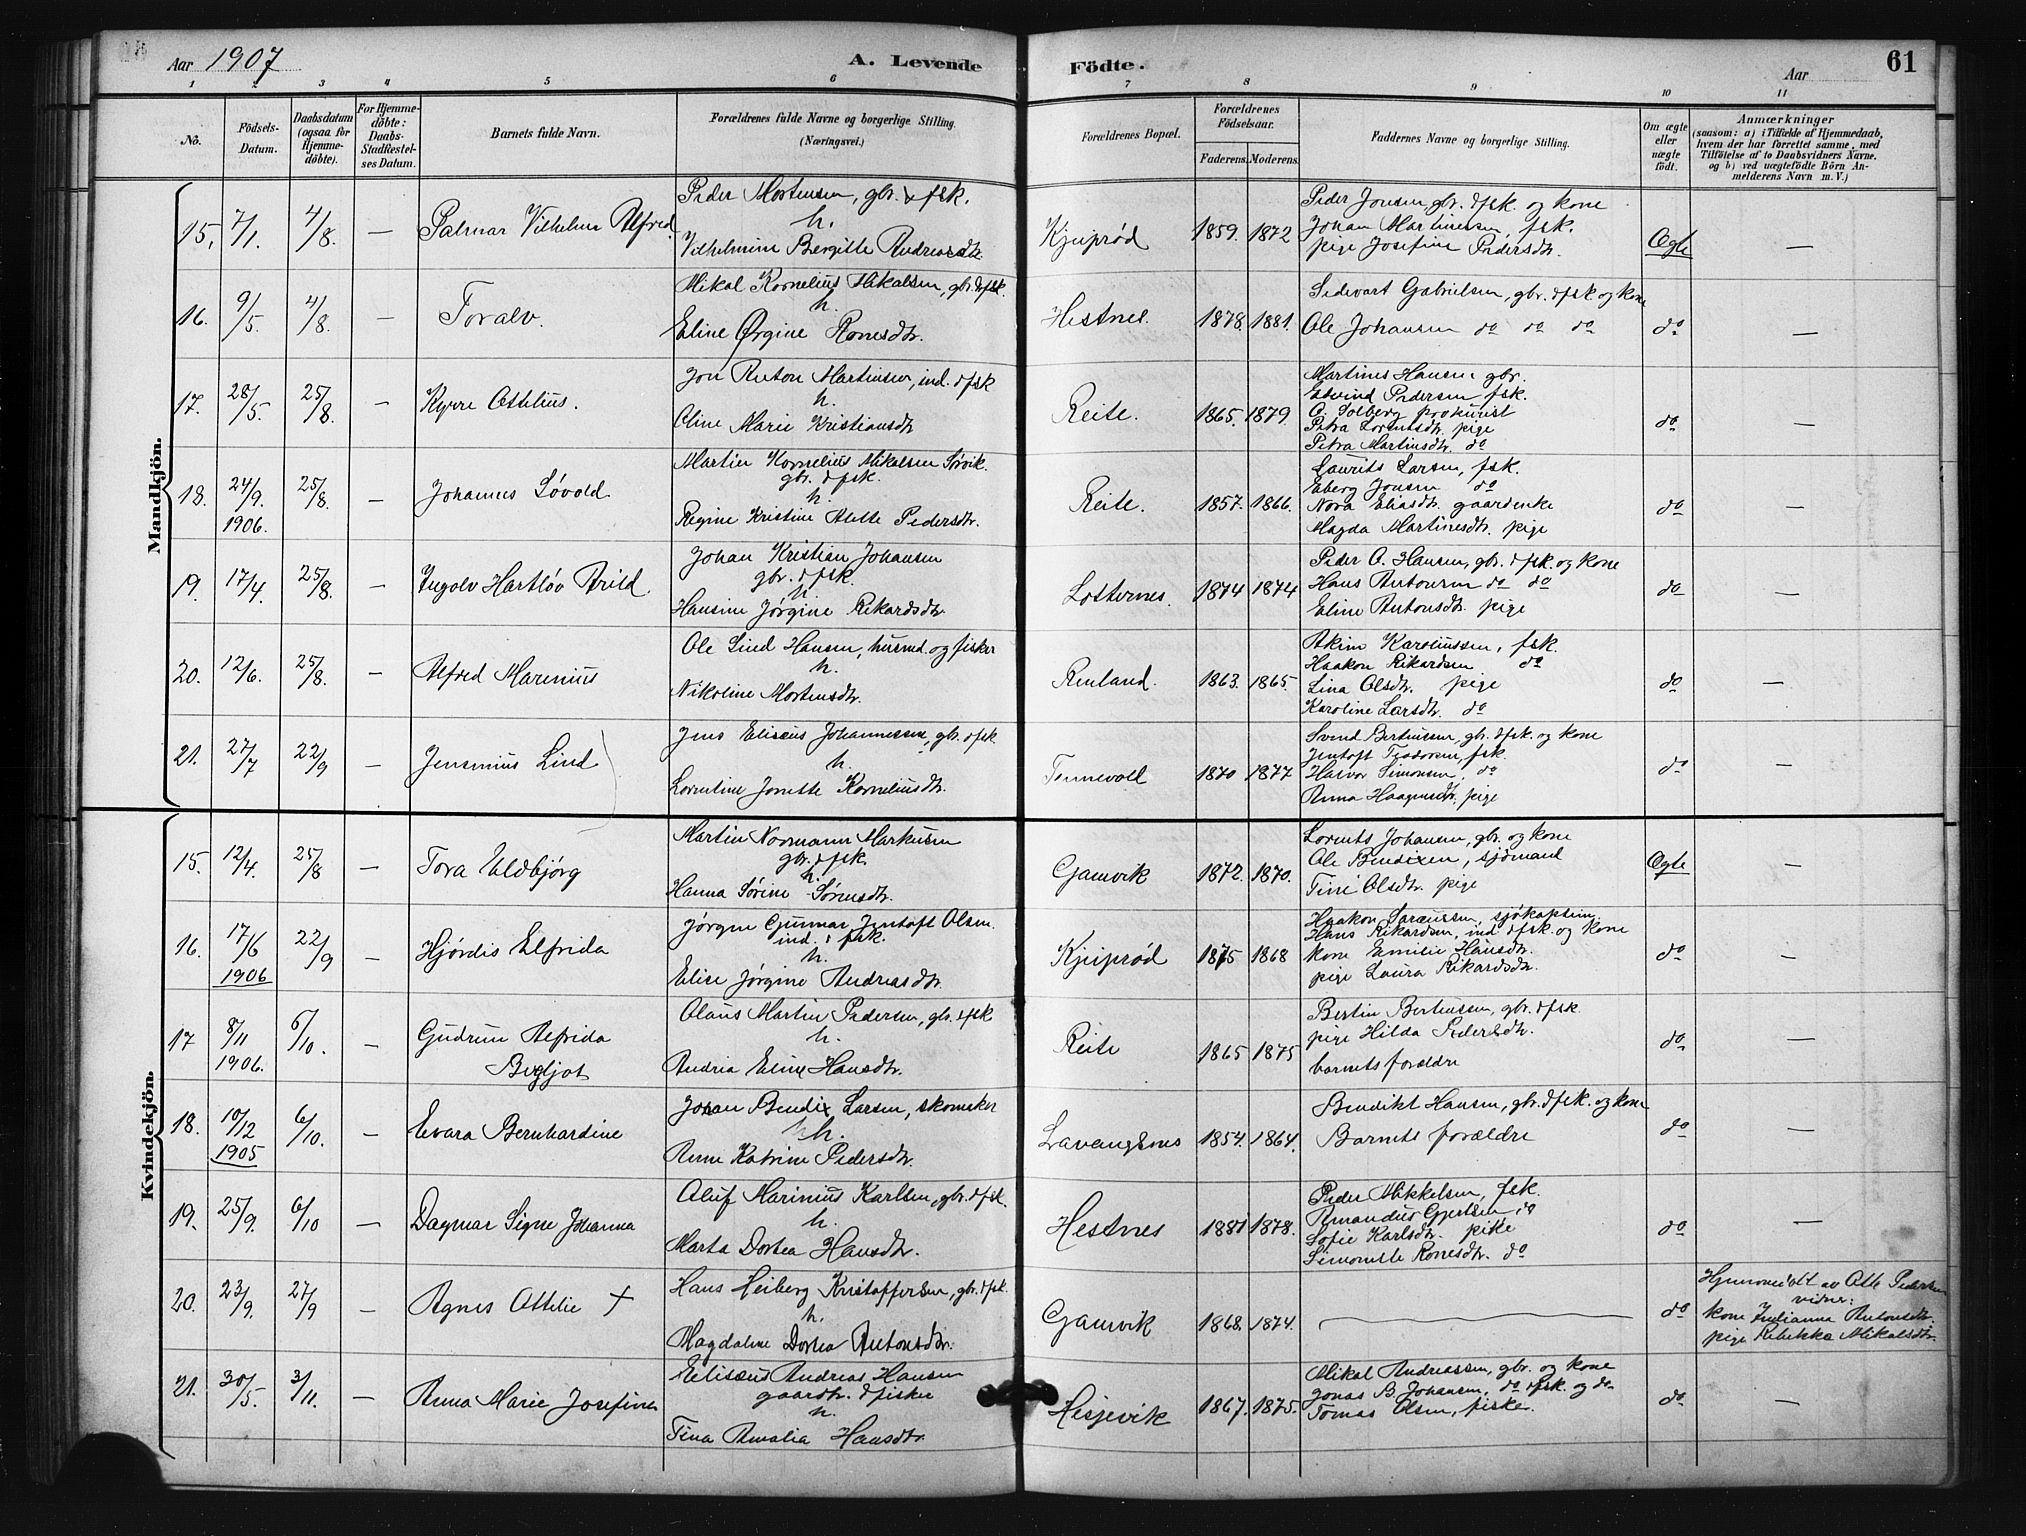 Aar 1907
A. Levende Födte.
Aar
61
1 2 3 4 5 6 7 8 9 10 11
No.
Födsels-Datum.
Daabsdatum (ogsaa for Hjemme-döbte).
For Hjemme-döbte: Daabs-Stadfæstel-ses Datum.
Barnets fulde Navn.
Forældrenes fulde Navne og borgerlige Stilling. (Næringsvei.)
Forældrenes Bopæl.
Forældrenes Födselsaar.
Faderens. Moderens.
Faddernes Navne og borgerlige Stilling.
Om ægte eller uægte födt.
Anmærkninger (saasom: a) i Tilfælde af Hjemmedaab, hvem der har forrettet samme, med Tilföielse af to Daabsvidners Navne, og b) ved uægtefödte Börn An-melderens Navn m. V.)
Mandkjön.
15. 7/1. 4/8. — Palmar Vilhelm Alfred
Peder Mortensen, gbr. & fsk.
h.
Vilhelmine Bergitte Andreasdtr.
Kjeiprød 1859. 1872
Peder Jonsen gbr. & fsk. og kone
Johan Martinesen, fsk.
pige Josefine Pedersdtr.
Ægte —
16. 9/5. 4/8. — Toralv.
Mikal Kornelius Mikalsen, gbr. & fsk.
h.
Eline Ørgine Ronesdtr.
Hestnes. 1878. 1881.
Sedevart Gabrielsen, gbr. & fsk og kone
Ole Johansen do do do
do —
17. 28/5. 25/8. — Kyrre Ottelius.
Jon Anton Martinsen, ind. & fsk
h.
Eline Marie Kristiansdtr
Reite. 1865. 1879
Martines Hansen gbr.
Edvind Pedersen fsk.
O. Solberg prokurist
Petra Lorentsdtr. pige
Petra Martinsdtr. do
do —
18. 24/9. 1906. 25/8. — Johannes Løvold
Martin Kornelius Mikalsen Sørvik.
gbr. & fsk.
h.
Regine Kristine Mette Pedersdtr.
Reite. 1857. 1866.
Laurits Larsen, fsk.
Eberg Jonsen do
Nora Eliasdtr. gaardenke
Magda Martinesdtr. pige
do —
19. 17/4. 25/8. — Ingolv Hartløv Arild
Johan Kristian Johansen
gbr. & fsk.
h.
Hansine Jørgine Rikardsdtr.
Lotternes. 1874 1874
Peder A. Hansen, gbr. & fsk. og kone
Hans Antonsen do do
Eline Antonsdtr. pige
do —
20. 12/6. 25/8. — Alfred Marenius
Ole Lind Hansen, husmd. og fisker
h.
Nikoline Mortensdtr.
Renland. 1863. 1865.
Akim Karoliussen, fsk.
Haakon Rikardsen do
Lina Olsdtr. pige
Karoline Larsdtr. do
do —
21. 27/7 22/9 — Jensenius Lind
Jens Eliseus Johannessen, gbr. & fsk.
h.
Lorentine Jonette Korneliusdtr.
Tennevold 1870 1877
Svend Berteussen, gbr. & fsk. og kone
Jentoft Teodorsen, fsk.
Halvor Simonsen, do
Anna Haagensdtr. pige
do —
Kvindekjön.
15. 12/4. 25/8 — Tora Uldbjørg
Martin Normann Markusen
gbr. & fsk.
h.
Hanna Sørine Sørensdtr.
Gamvik 1872. 1870.
Lorents Johansen, gbr. og kone
Ole Bendixen, sjömand
Tine Olsdtr. pige
Ægte —
16. 17/6 1906 22/9 — Hjørdis Elfrida
Jørgen Gunnar Jentoft Olsen.
ind. & fsk.
h.
Elise Jørgine Andreasdtr.
Kjeiprød 1875 1868
Haakon Larsen, sjökaptein.
Hans Rikardsen, ind & fsk. og kone
kone Emilie Hansdtr.
pige Laura Rikardsdtr.
do —
17 8/11 1906. 6/10. — Gudrun Alfrida
Bergljot
Olaus Martin Pedersen, gbr. & fsk
h.
Andria Eline Hansdtr.
Reite 1865 1875
Bertin Berteussen, gbr. & fsk.
pige Hilda Pedersdtr.
barnets forældre
do —
18. 10/12 1905 6/10. — Evara Bernhardine
Johan Bendix Larsen, skomaker
h.
Anne Katrine Pedersdtr.
Lavangsnes 1854. 1864.
Bendikt Hansen, gbr. & fsk. og kone
Barnets forældre
do —
19. 25/9. 6/10 — Dagmar Signe Johanna
Oluf Marinius Karlsen, gbr. & fsk.
h.
Marta Dortea Hansdtr.
Hestnes 1881 1878.
Peder Mikkelsen, fsk.
Amandus Gjertsen do
Sofie Karlsdtr. pike
Simonette Ronesdtr. do
do —
20. 23/9. 27/9 — Agnes Ottilie +
Hans Heiberg Kristoffersen, gbr. & fsk.
h.
Magdalene Dortea Antonsdtr.
Gamvik 1868. 1874.
do
Hjemmedöbt av Otto Pedersen
vidner:
kone Julianna Antonsdtr.
pige Rebekka Mikalsdtr.
21. 30/5. 3/11. — Anna Marie Josefine
Eliseus Andreas Hansen
gaardbr. & fisker
h.
Tina Amalia Hansdtr
Hesjevik 1867. 1875.
Mikal Andreassen, gbr. og kone
Jonas B. Johansen, do & fsk. og do
Tomas Olsen, fisker.
do —